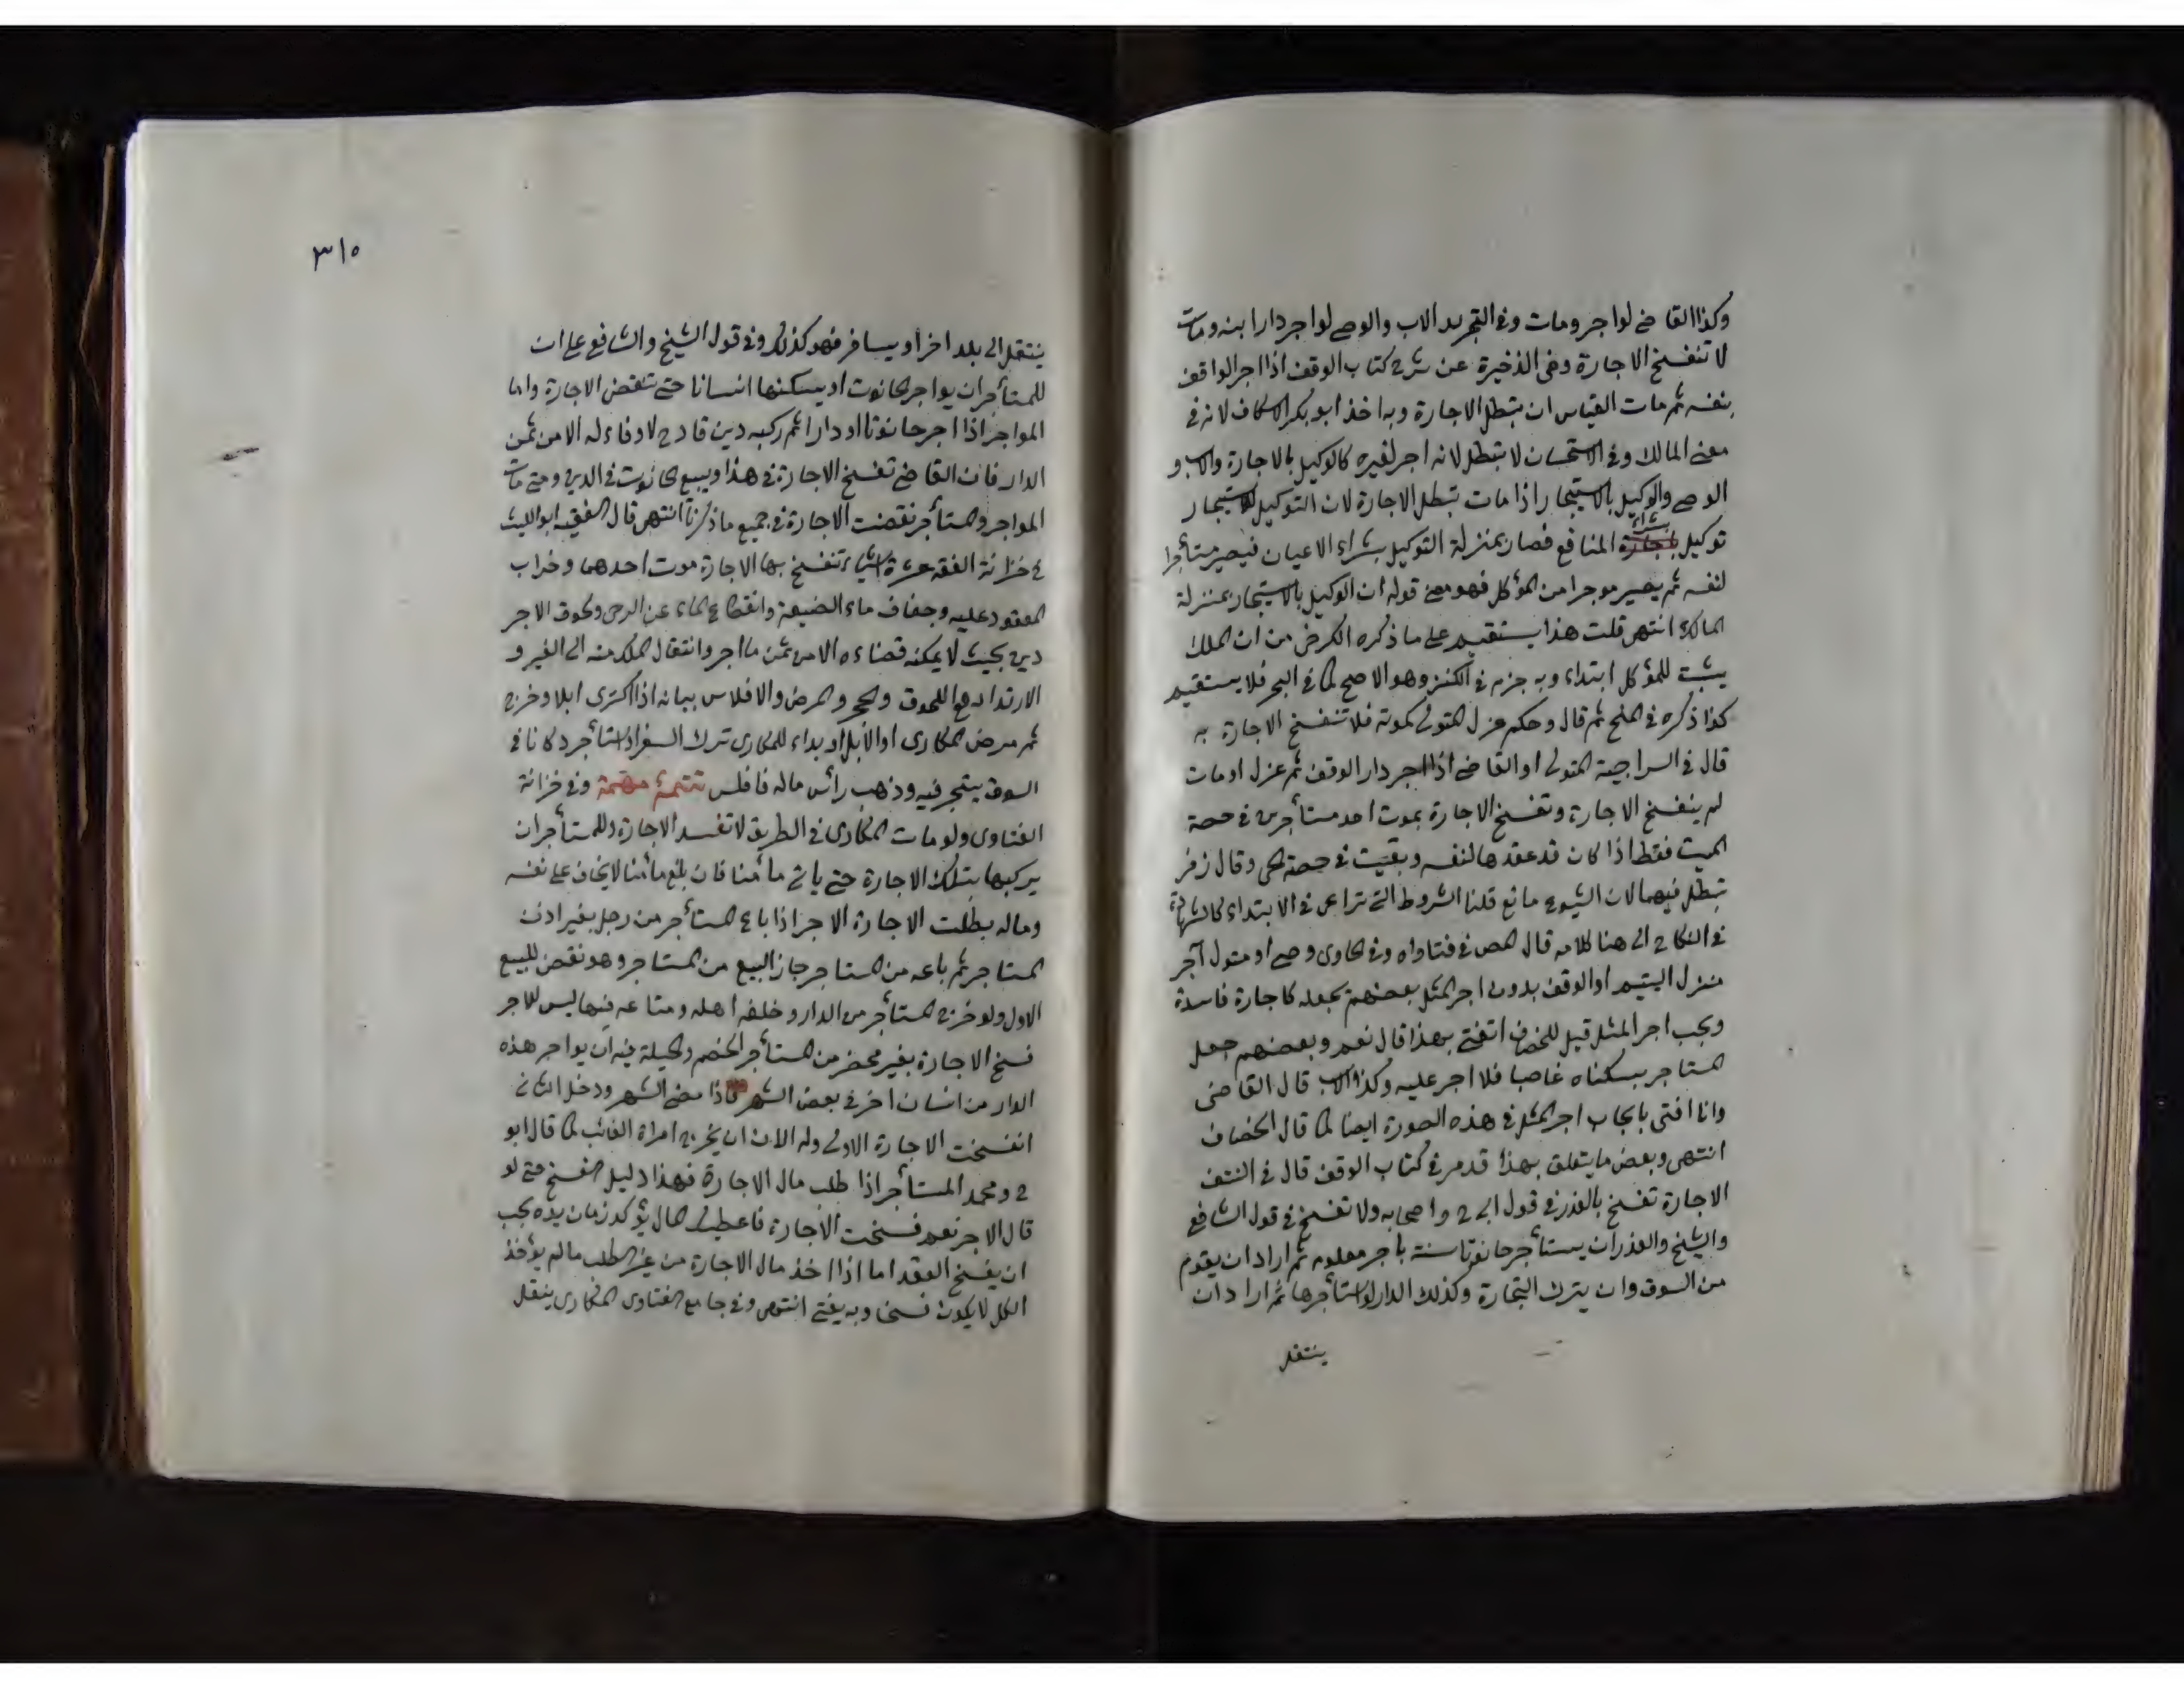 وكذا القاضي لو اجر ومات وفي التجريد الاب والوصي لو اجر دار ابنه ومات
لا تنفسخ الاجارة وفي الذخيرة عن شرح كتاب الوقف اذا اجر الواقف
بنفسه ثم مات القياس ان تبطل الاجارة وبه اخذ ابو بكر الاسكاف لانه في
معنى المالك وفي الاستحسان لا تبطل لانه اجر لغيره كالوكيل بالاجارة والاب و
الوصي والوكيل بالاستيجار اذا مات تبطل الاجارة لان التوكيل بالاستيجار
توكيل بشراء المنافع فصار بمنزلة التوكيل بشراء الاعيان فيصير مستأجرا
لنفسه ثم يصير موجرا من المؤكل فهو معنى قوله ان الوكيل بالاستيجار بمنزلة
المالك انتهى قلت هذا يستقيم على ما ذكره الكرخي من ان الملك
يثبت للمؤكل ابتداء وبه جزم في الكنز وهو الاصح كما في البحر فلا يستقيم
كذا ذكره في المنح ثم قال وحكم عزل المتولي كموته فلا تنفسخ الاجارة به
قال في السراجية المتولي او القاضي اذا اجر دار الوقف ثم عزل او مات
لم ينفسخ الاجارة وتفسخ الاجارة بموت احد مستأجرين في حصة
الميت فقط اذا كان قد عقدها لنفسه وبقيت في حصة الحي وقال زفر
تبطل فيهما لان الشيوع مانع قلنا الشروط التي تراعى في الابتداء كالشهادة
في النكاح الى هنا كلامه قال المص في فتاواه وفي الحاوى وصي او متول آجر
منزل اليتيم او الوقف بدون اجر المثل بعضهم يجعله كاجارة فاسدة
ويجب اجر المثل قيل للخصاف اتفتي بهذا قال نعم وبعضهم جعل
المستاجر بسكناه غاصبا فلا اجر عليه وكذا الاب قال القاضي
وانا افتى بايجاب اجر المثل في هذه الصورة ايضا كما قال الخصاف
انتهى وبعض ما يتعلق بهذا قد مر في كتاب الوقف قال في النتف
الاجارة تفسخ بالعذر في قول ابي ح واصحابه ولا تفسخ في قول الشافعي
والشيخ والعذر ان يستأجر حانوتا سنة باجر معلوم ثم اراد ان يقوم
من السوق وان يترك التجارة وكذلك الدار لو استأجرها ثم اراد ان
ينتقل
٣١٥
ينتقل الى بلد اخر او يسافر فهو كذلك وفي قول الشيخ والشافعي على ان
للمستأجر ان يواجر الحانوت او يسكنها انسانا حتى تنقض الاجارة واما
المواجر اذا اجر حانوتا او دارا ثم ركبه دين قادح لا وفاء له الا من ثمن
الدار فان القاضي تفسخ الاجارة في هذا ويبيع الحانوت في الدين ومتى مات
المواجر والمستأجر نقضت الاجارة في جميع ما ذكرنا انتهى قال الفقيه ابو الليث
في خزانة الفقه عشرة اشياء تنفسخ بها الاجارة موت احدهما وخراب
المعقود عليه وجفاف ماء الضيعة وانقطاع الماء عن الرحى ولحوق الاجر
دين بحيث لا يمكنه قضاءه الا من ثمن ما اجر وانتقال الملك منه الى الغير و
الارتداد مع اللحوق والحجر والمرض والافلاس بيانه اذا اكترى ابلا وخرج
ثم مرض المكارى او الابل او بداء للمكارى ترك السفر او استأجر دكانا في
السوق يتجر فيه وذهب رأس ماله فافلس تتمة مهمة وفي خزانة
الفتاوى ولو مات المكارى في الطريق لا تفسد الاجارة وللمستأجر ان
يركبها بتلك الاجارة حتى ياتي مأمنا فان بلغ مأمنا لا يخاف على نفسه
وماله بطلت الاجارة الاجر اذا باع المستأجر من رجل بغير اذن
المستاجر ثم باعه من المستاجر جاز البيع من المستاجر وهو نقض للبيع
الاول ولو خرج المستأجر من الدار وخلف اهله ومتاعه فيها ليس للاجر
فسخ الاجارة بغير محضر من المستأجر الخصم والحيلة فيه ان يواجر هذه
الدار من انسان اخر في بعض الشهر فاذا مضى الشهر ودخل الثاني
انفسخت الاجارة الاولى وله الان ان يخرج امراة الغائب كما قال ابو
ح ومحمد المستأجر اذا طلب مال الاجارة فهذا دليل الفسخ حتى لو
قال الاجر نعم فسخت الاجارة فاعطى المال يؤكد زمان يده يجب
ان يفسخ العقد اما اذا اخذ مال الاجارة من غير الطلب ما لم يؤخذ
الكل لا يكون فسخا وبه يفتى انتهى وفي جامع الفتاوى المكارى ينقل